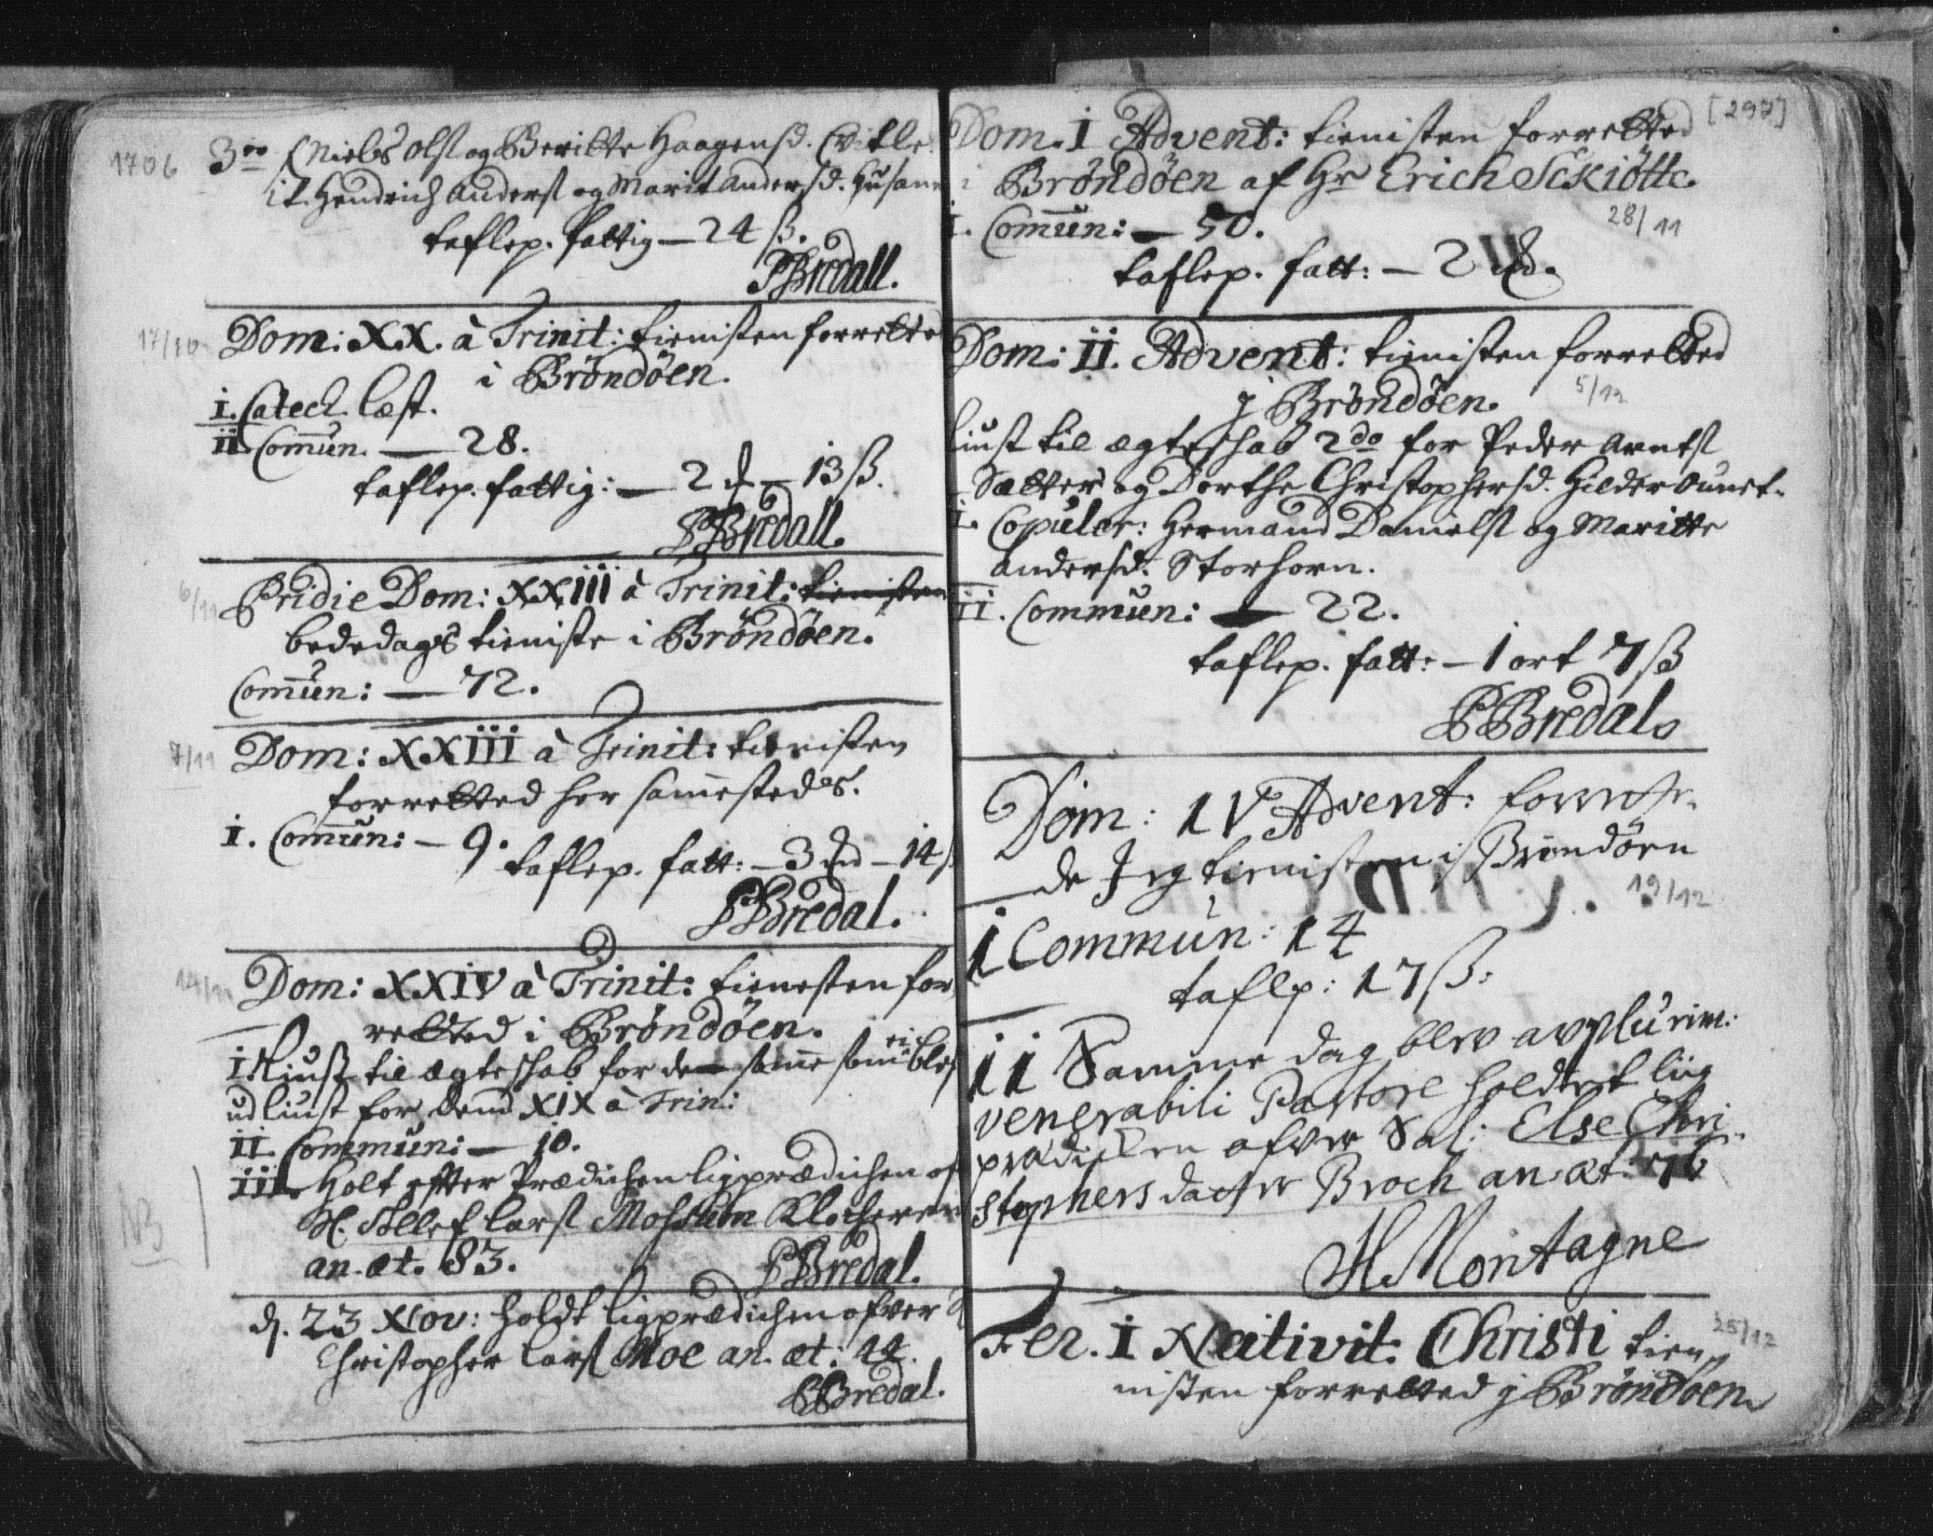 1706
3tio Niels Olss og Beritte Haagensd. Vitle
it. Hendrich Anderss og Marit Andersd. Husan
taflep. fattig — 24 ß.
PBredall.
17/10
Dom: XX. à Trinit: tienisten forretted
i Bröndöen.
I. Catech. læst.
II Comun. — 28.
taflep. fattig: — 2 — 13 ß.
PBredall.
6/11
Pridie Dom: XXIII à Trinit: tienisten
bededags tieniste i Bröndöen.
Comun: — 72.
7/11
Dom: XXIII à Trinit: tienisten
forretted her sammesteds.
I. Comun: — 9.
taflep. fatt: — 3 — 14 ß
PBredal.
14/11
Dom: XXIV à Trinit: tienesten for
retted i Bröndöen.
I Liust til ægteskab for de samme som blef
udliust for Dend XIX à Trin:
II. Commun: — 10.
III. Holt efter Prædichen ligprædichen of
S. Tollef Larss Mossum Klocheren
an. æt. 83.
PBredal.
NB
d. 23 Nov: holdt ligprædichen ofver
Christopher Larss Moe an. æt: 44.
PBredal.
[297]
Dom. I Advent: tienisten forretted
i Bröndöen af Hr Erich Sckiötte.
28/11
I. Comun: — 50.
taflep. fatt: — 2
Dom: II. Advent: tienisten forretted
j Bröndöen.
5/12
liust til ægteskab 2do for Peder Arntss
Sætter og Dorthe Christophersd. Hilder
I. Copuler: Hermand Danielss og Maritte
Andersd. Storhorn.
II. Commun: — 22.
taflep. fatt: — 1 ort 7 ß
PBredal.
Dom: IV Advent: forret-
de Jeg tienisten i Bröndöen
19/12
I Commun: 14
taflp: 17 ß:
II Samme dag blev a plurim:
venerabili Pastore holdet liig
prædicken ofver Sal: Else Chri-
stophers datter Broch an. æt: 76
H. Montagne
Fer. I Nativit: Christi tien
25/12
nisten forretted j Bröndöen